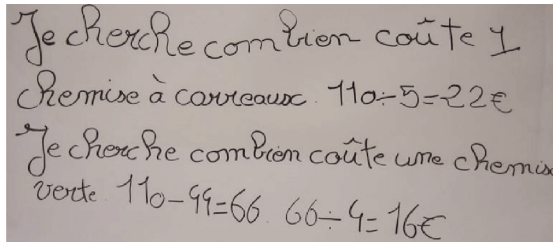 Je cherche combien coûte 1
chemise à carreaux 110÷5=22€
Je cherche combien coûte une chemise
verte 110-44=66 66÷4=16€